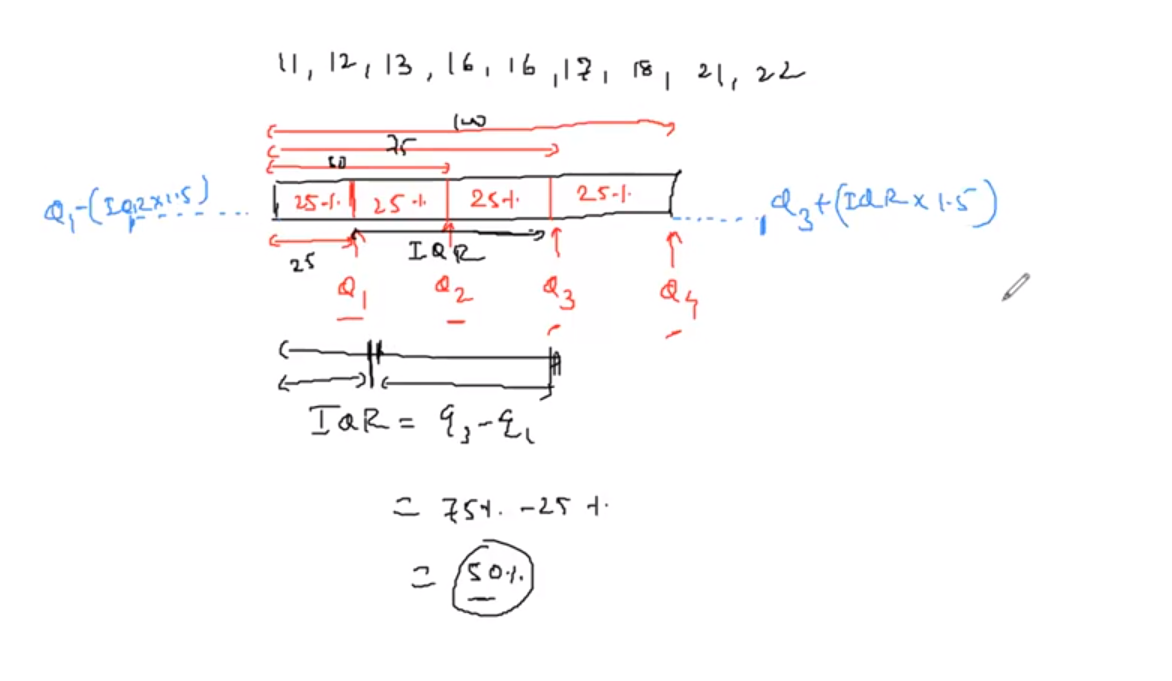 11, 12, 13, 16, 16, 17, 18, 21, 22
100
75
50
Q1-(IQRx1.5) 25% 25% 25% 25% Q3+(IQR x 1.5)
25 IQR
Q1 Q2 Q3 Q4
IQR = q3-q1
= 75% - 25%
= 50%